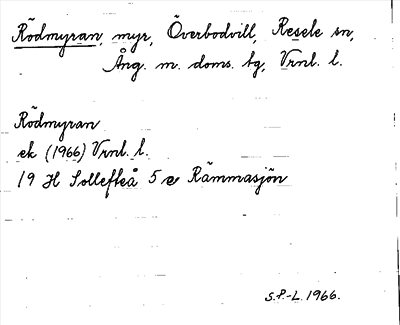 Rödmyran, myr, Överbodvill, Resele sn,
Ång. m. doms. bg, Vrnl. l.
Rödmyran
ek (1966) Vrnl. l.
19 H Sollefteå 5 e Rämmasjön
S.P-L. 1966.